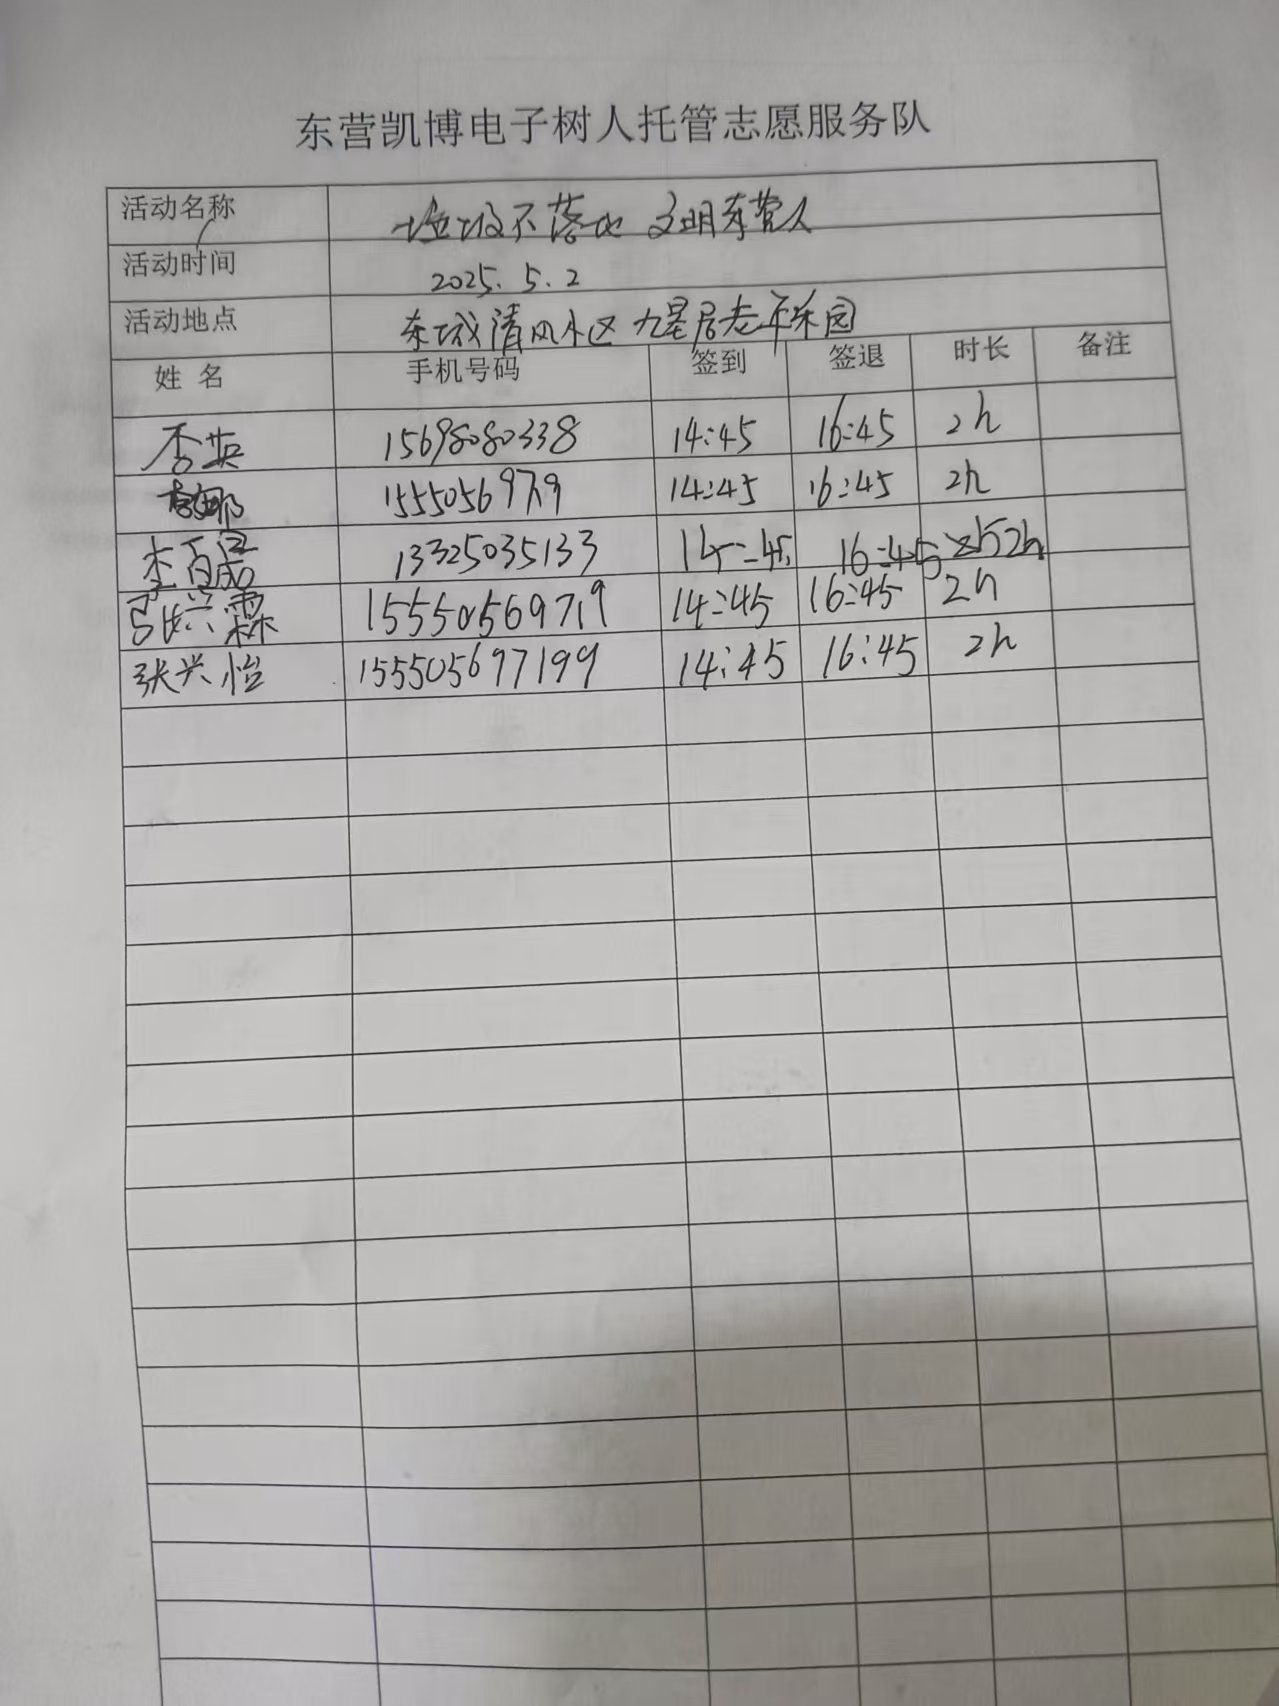 东营凯博电子树人托管志愿服务队
活动名称 垃圾不落地 文明东营人
活动时间 2025.5.2
活动地点 东城清风小区 九星居老年乐园
姓名 手机号码 签到 签退 时长 备注
李英 15698080338 14:45 16:45 2h
14:45 16:45 2h
13325035133 14:45 16:45 2h
兴霖 14:45 16:45 2h
张兴怡 155505697199 14:45 16:45 2h